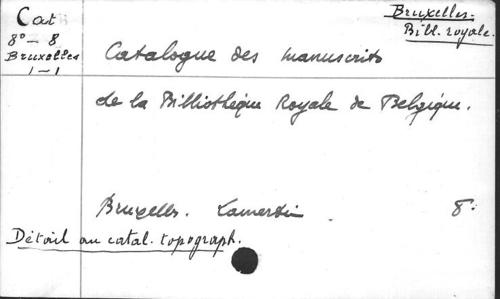 Cat
8° — 8
Bruxelles
1 — 1
Bruxelles.
Bibl. royale.
Catalogue des manuscrits
de la Bibliothèque Royale de Belgique.
Bruxelles. Lamertin. 8°
Détail au catal. topograph.